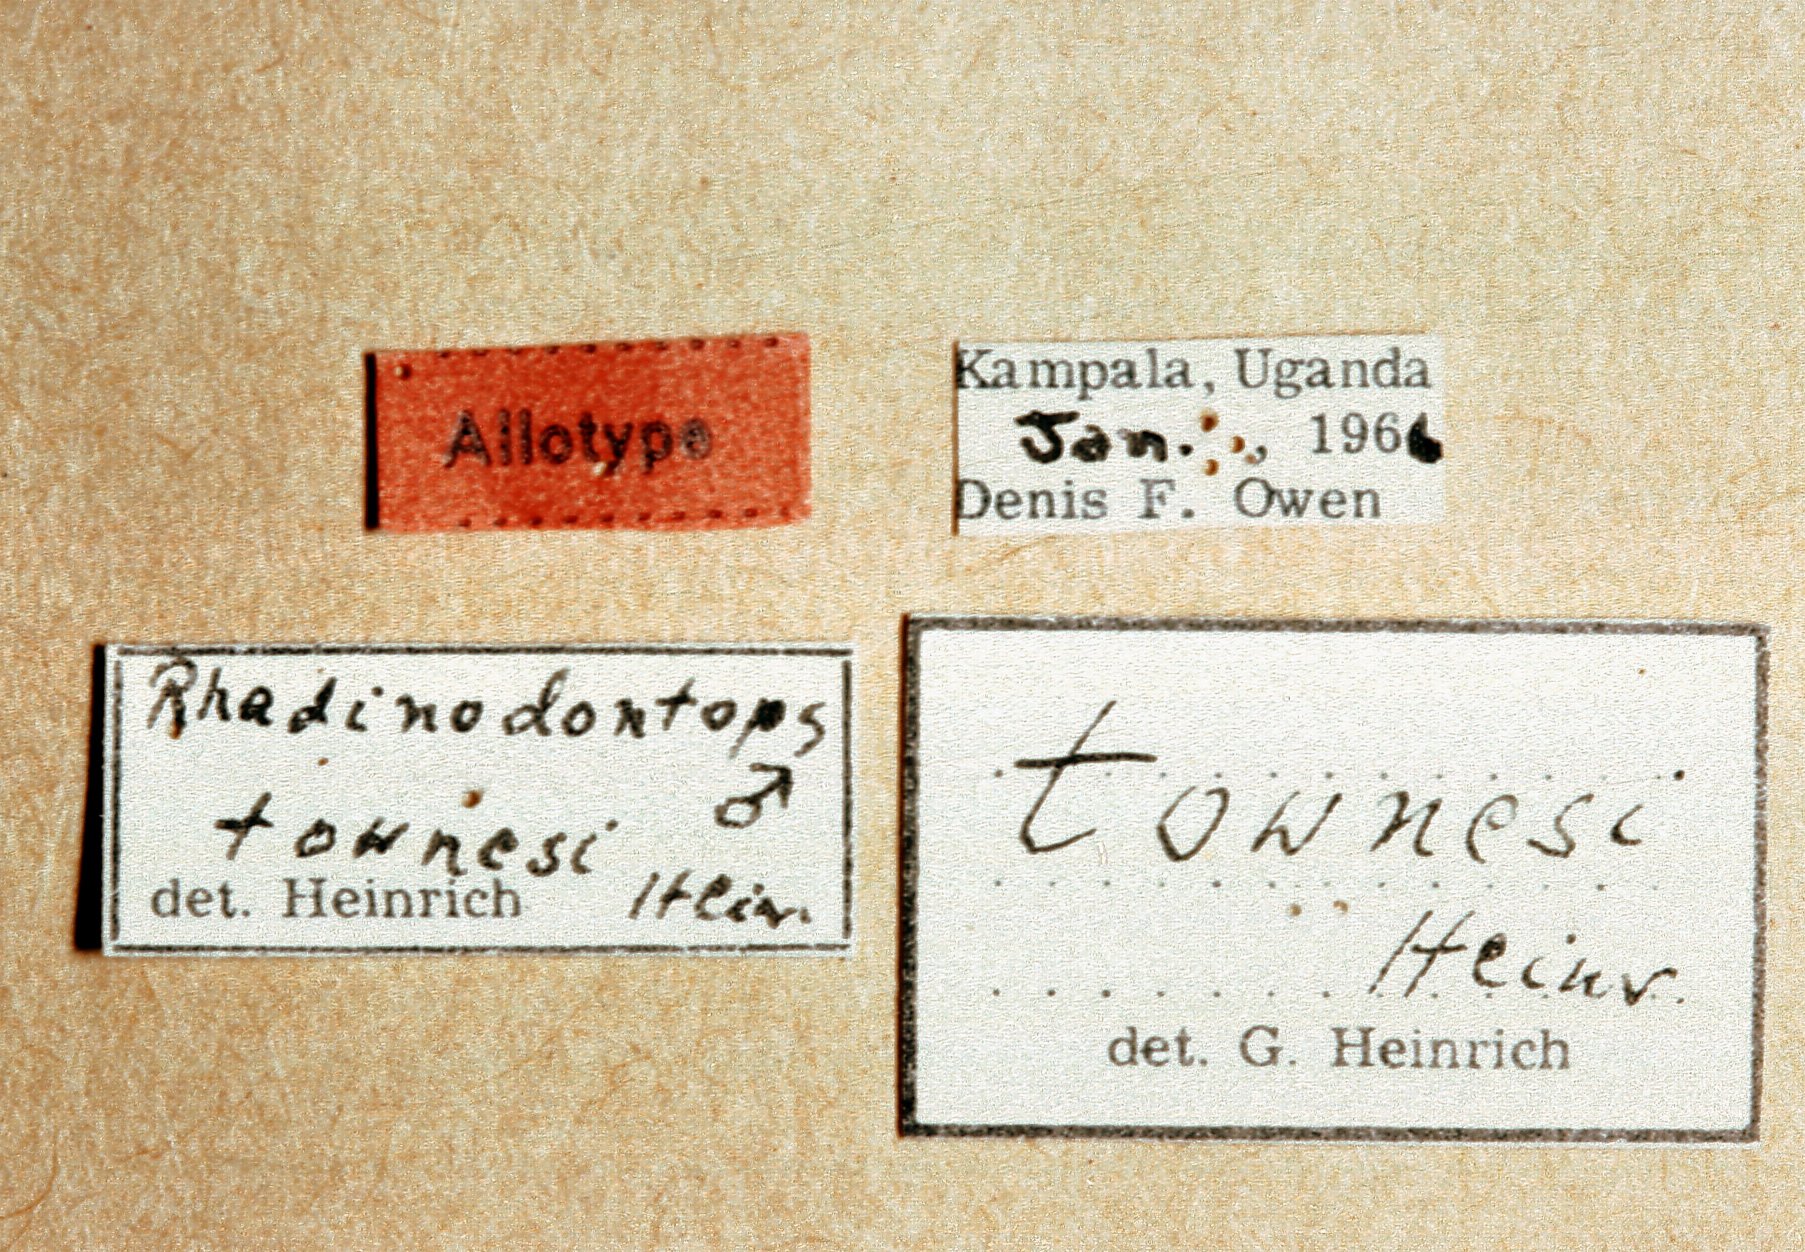 Allotype
Kampala, Uganda
Jan. , 1966
Denis F. Owen
Rhadinodontops
townesi ♂
det. Heinrich Heinr.
townesi
Heinr.
det. G. Heinrich